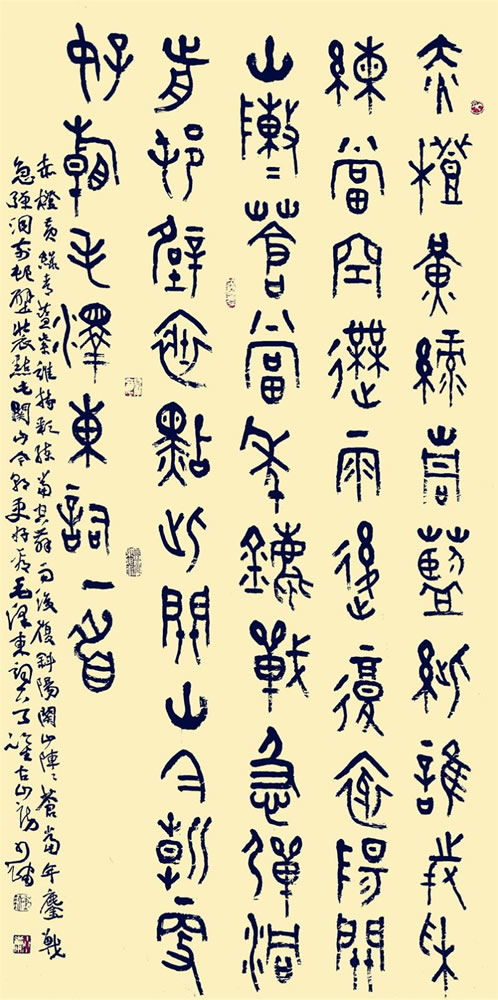 赤橙黃綠青藍紫誰持彩
練當空舞雨後復斜陽關
山陣〻蒼當年鏖戰急彈洞
前邨壁裝點此關山今朝更
好看毛澤東詞一首
赤橙黃綠青藍紫誰持彩練當空舞雨後復斜陽關山陣〻蒼當年鏖戰
急彈洞前邨壁裝點此關山今朝更好看毛澤東詞